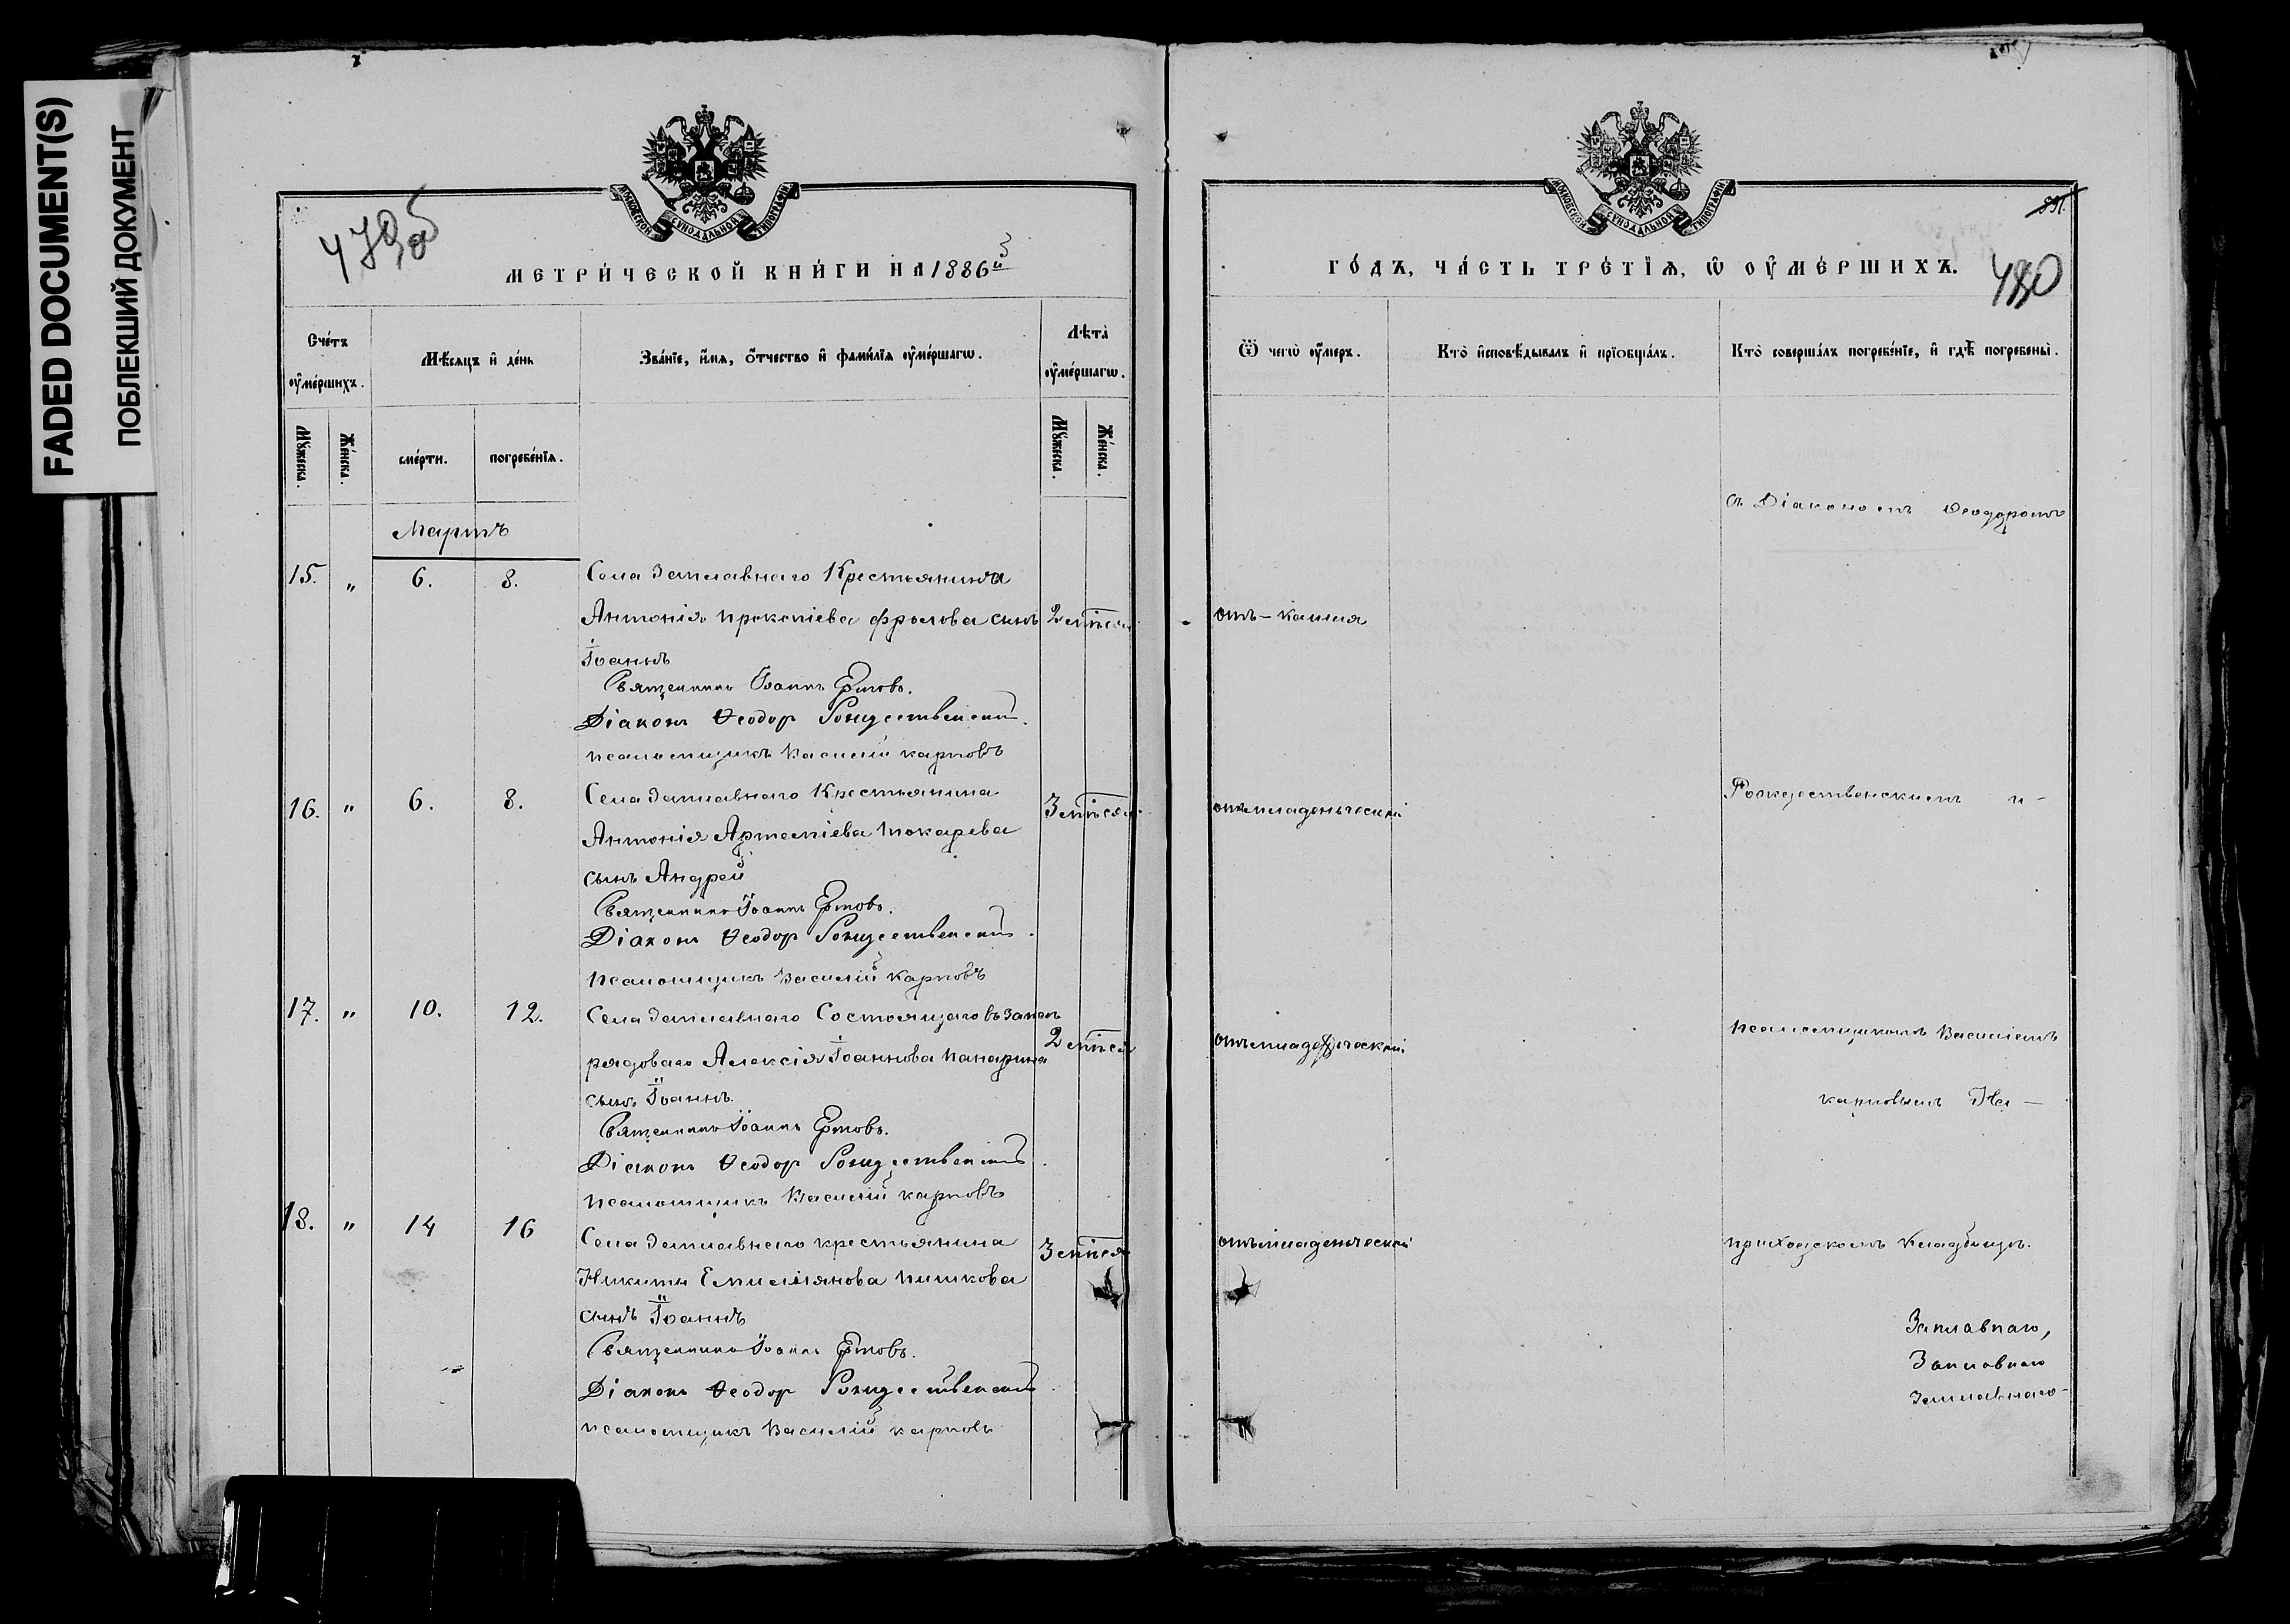 FADED DOCUMENT(S)
ПОБЛЕКШИЙ ДОКУМЕНТ
479об
МЕТРИ́ЧЕСКОЙ КНИ́ГИ НА 1886й
Сче́тъ оу҆ме́ршихъ.
Мꙋ́жеска.
Же́нска.
Мѣ́сяцъ и҆ де́нь
сме́рти.
погребе́нїѧ.
Зва́нїе, и҆́мѧ, ѻ҆́тчество и҆ фами́лїѧ оу҆ме́ршагѡ.
Лѣта̀ оу҆ме́ршагѡ.
Мꙋ́жеска.
Же́нска.
Мартъ
15. „ 6. 8. Села Заплавнаго Крестьянина
Антонія Прокопіева Фролова сынъ 2 мѣся.
Іоаннъ
Священникъ Іоаннъ
Діаконъ Ѳеодоръ Рождественскій.
псаломщикъ Василій Карповъ
16. „ 6. 8. Села Заплавнаго Крестьянина 3 мѣсяц.
Антонія Артеміева Токарева
сынъ Андрей
Священникъ Іоаннъ
Діаконъ Ѳеодоръ Рождественскій.
псаломщикъ Василій Карповъ
17. „ 10. 12. Села Заплавнаго Состоящаго въ запас
рядоваго Алексія Іоаннова Панарина 2 мѣся
сынъ Іоаннъ.
Священникъ Іоаннъ
Діаконъ Ѳеодоръ Рождественскій.
псаломщикъ Василій Карповъ
18. „ 14 16 Села Заплавнаго крестьянина 3 мѣся
Никиты Емиліянова Пишкова
сынъ Іоаннъ
Священникъ Іоаннъ
Діаконъ Ѳеодоръ Рождественскій
псаломщикъ Василій Карповъ
480
ГО́ДЪ, ЧА́СТЬ ТРЕ́ТЇѦ, Ѡ҆ ОУ҆МЕ́РШИХЪ.
Ѿ чегѡ̀ оу҆́меръ.
Кто̀ и҆сповѣ́дывалъ и҆ прїѻбща́лъ.
Кто̀ соверша́лъ погребе́нїе, и҆ гдѣ̀ погребены̀.
съ Діакономъ Ѳеодоромъ
отъ кашля
Рождественскимъ и
отъ младенческой
псаломщикомъ Василіемъ
отъ младенческой
Карповымъ На
приходскомъ кладбищѣ.
отъ младенческой
Заплавнаго,
Заплавнаго
Заплавнаго